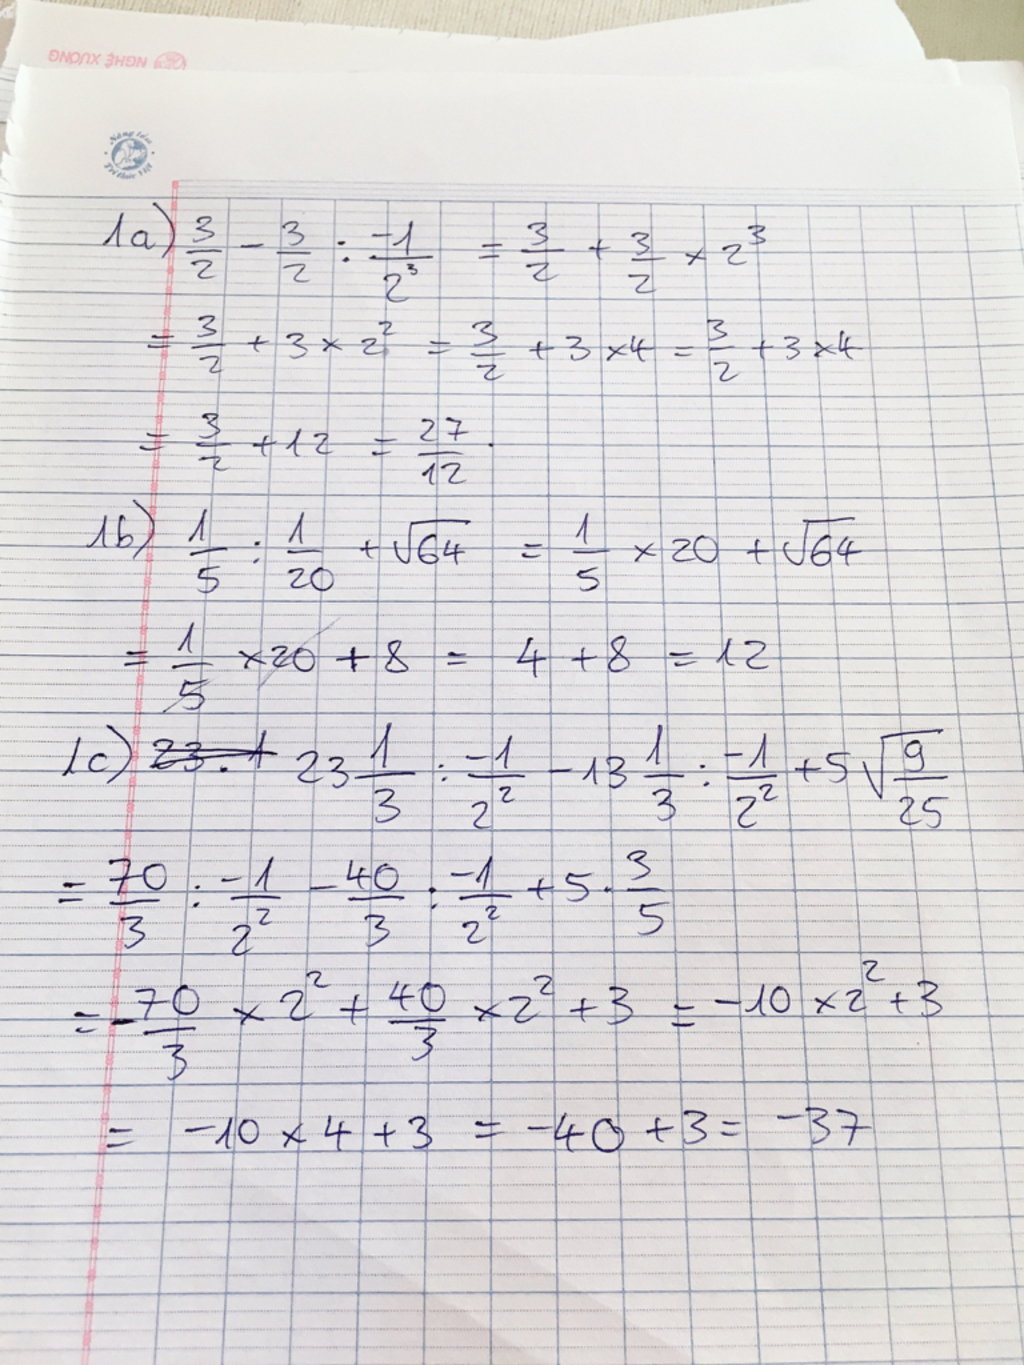 NGHỆ XƯƠNG
Sáng tỏa
Trí thức Việt
1a) 3/2 - 3/2 : -1/2³ = 3/2 + 3/2 × 2³
= 3/2 + 3 × 2² = 3/2 + 3 × 4 = 3/2 + 3 × 4
= 3/2 + 12 = 27/12 .
1b) 1/5 : 1/20 + √64 = 1/5 × 20 + √64
= 1/5 × 20 + 8 = 4 + 8 = 12
1c) 23.1 23 1/3 : -1/2² - 13 1/3 : -1/2² + 5 √(9/25)
= 70/3 : -1/2² - 40/3 : -1/2² + 5 . 3/5
= - 70/3 × 2² + 40/3 × 2² + 3 = -10 × 2² + 3
= -10 × 4 + 3 = -40 + 3 = -37